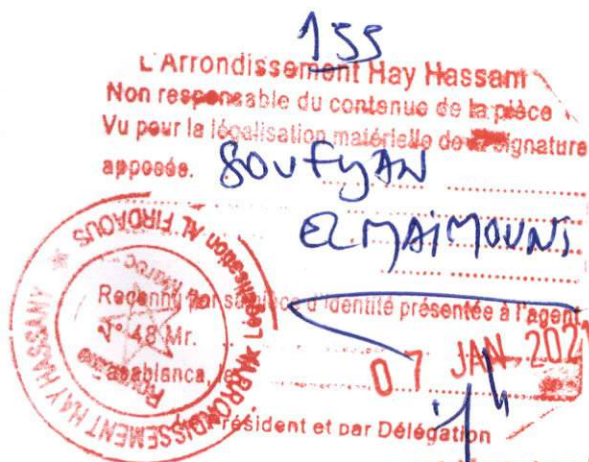 155
L'Arrondissement Hay Hassani
Non responsable du contenue de la pièce
Vu pour la légalisation matérielle de la signature
apposée. SOUFYAN
EL MAIMOUNI
Reconnu par sa pièce d'identité présentée à l'agent
N° 48 Mr.
Casablanca, le
07 JAN. 2021
Président et par Délégation
ARRONDISSEMENT HAY HASSANY
Légalisation AL FIRDAOUS
Maroc